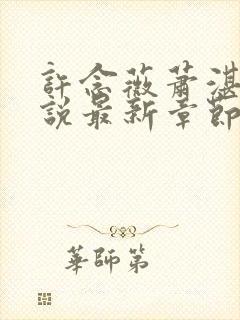 許念薇蕭湛
說最新章節
華師第